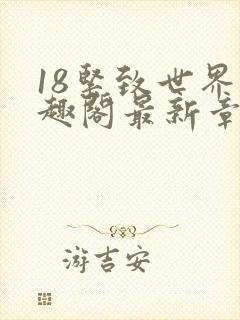 18坚致世界
趣阁最新章
游吉安